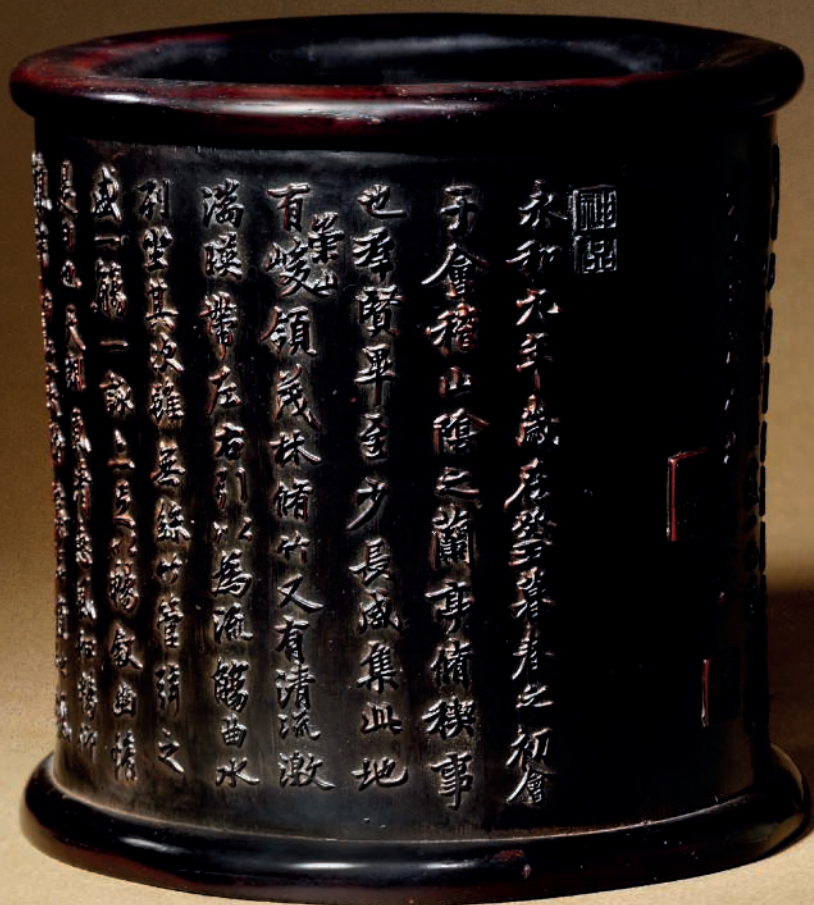 神品
永和九年歲在癸丑暮春之初會
于會稽山陰之蘭亭脩禊事
也羣賢畢至少長咸集此地
有崇山峻領茂林脩竹又有清流激
湍暎帶左右引以為流觴曲水
列坐其次雖無絲竹管弦之
盛一觴一詠亦足以暢敘幽情
是日也天朗氣清惠風和暢仰